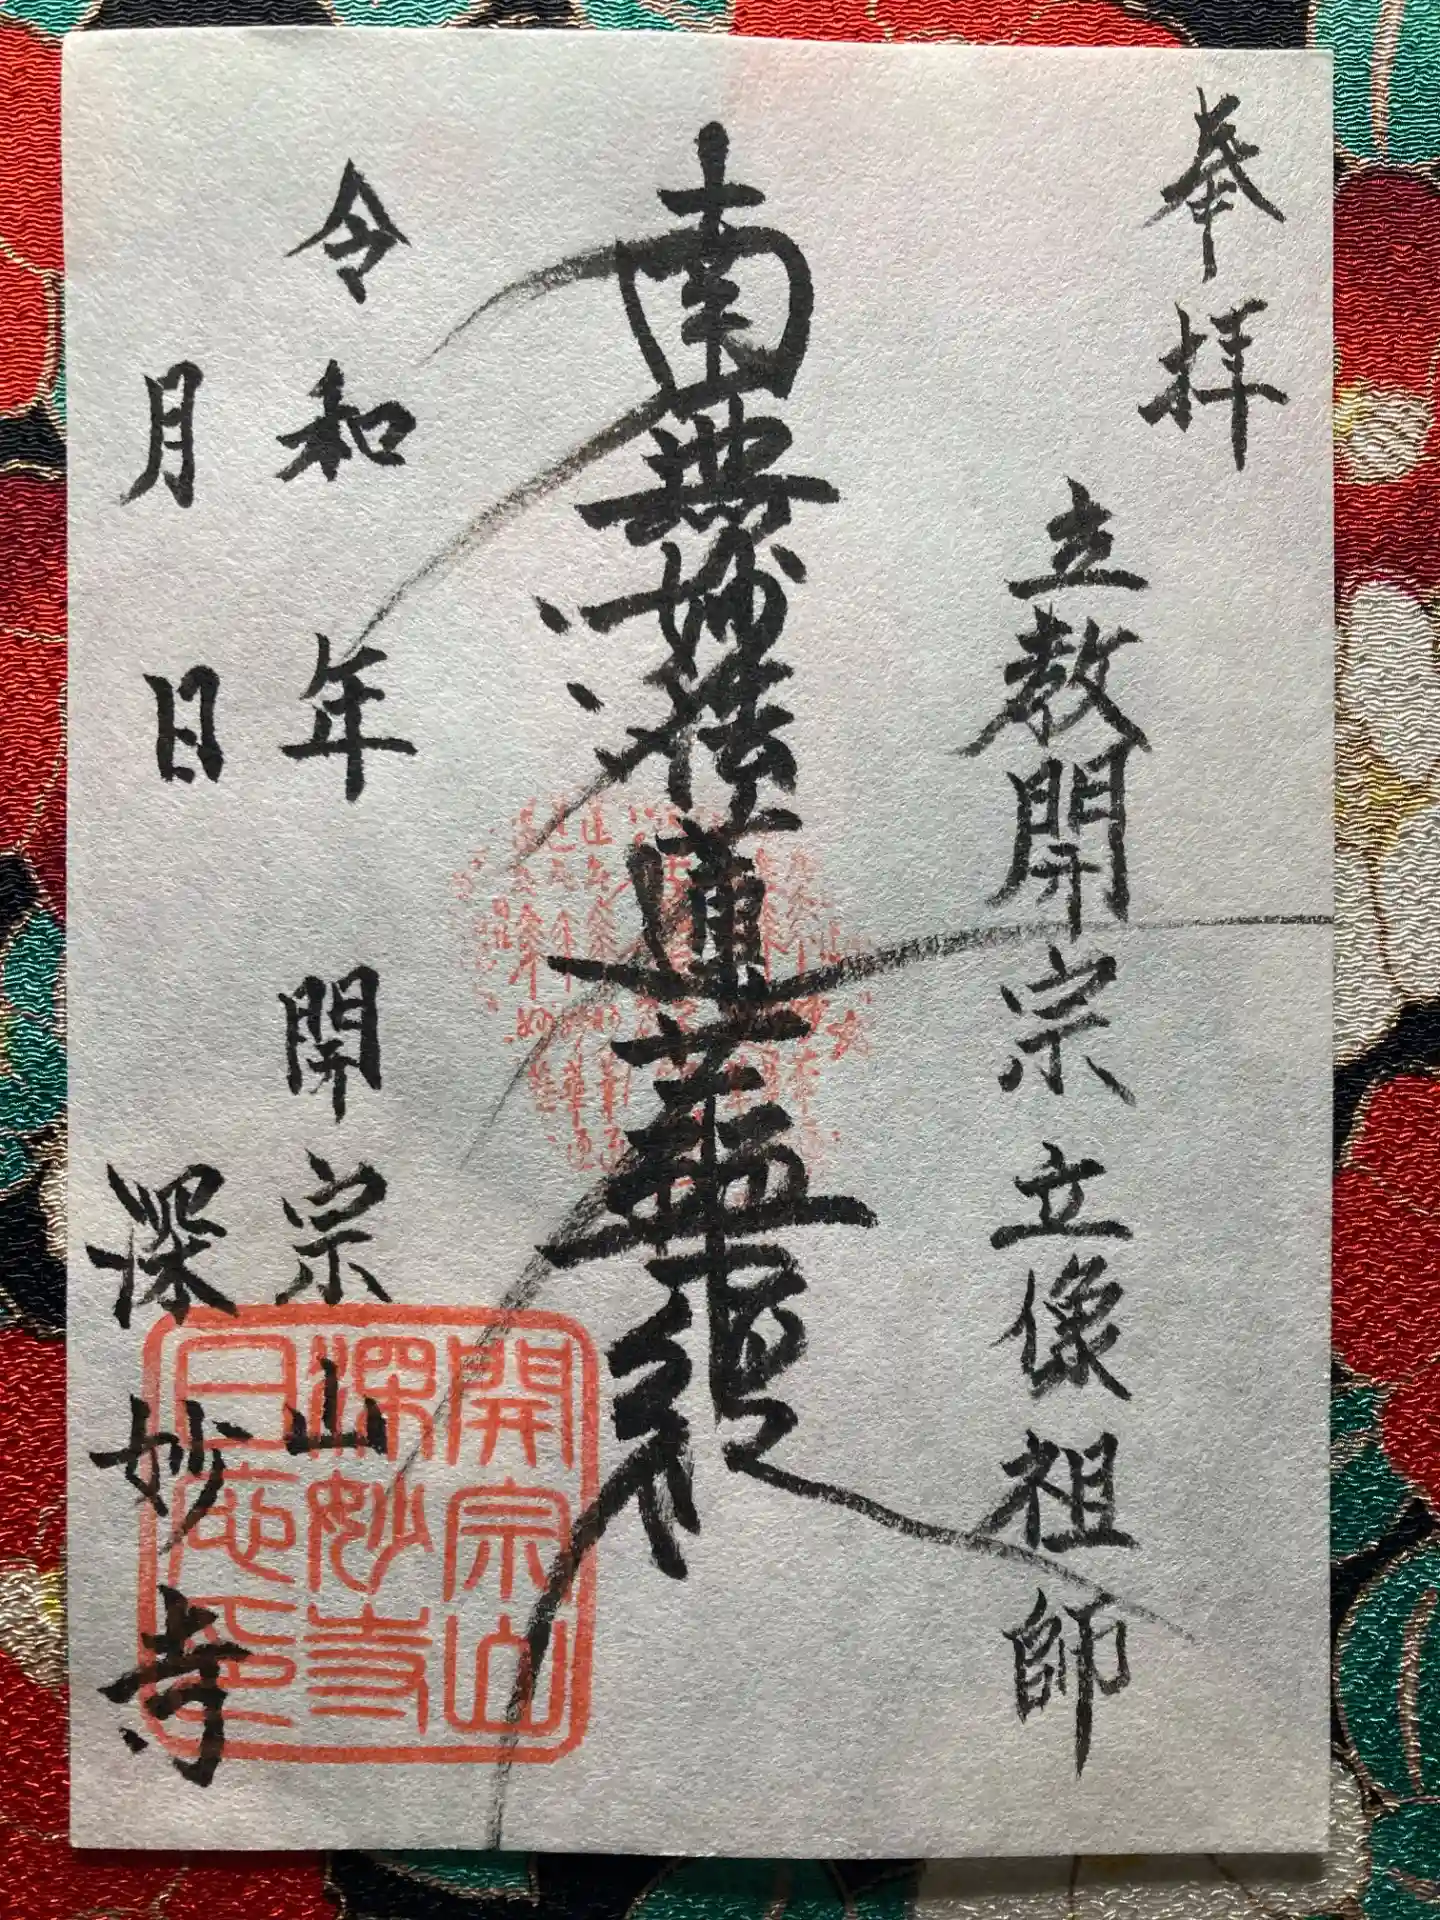 奉拝
立教開宗 立像祖師
南無妙法蓮華経
令和 年 開宗山
月 日 深妙寺
開宗山
深妙寺